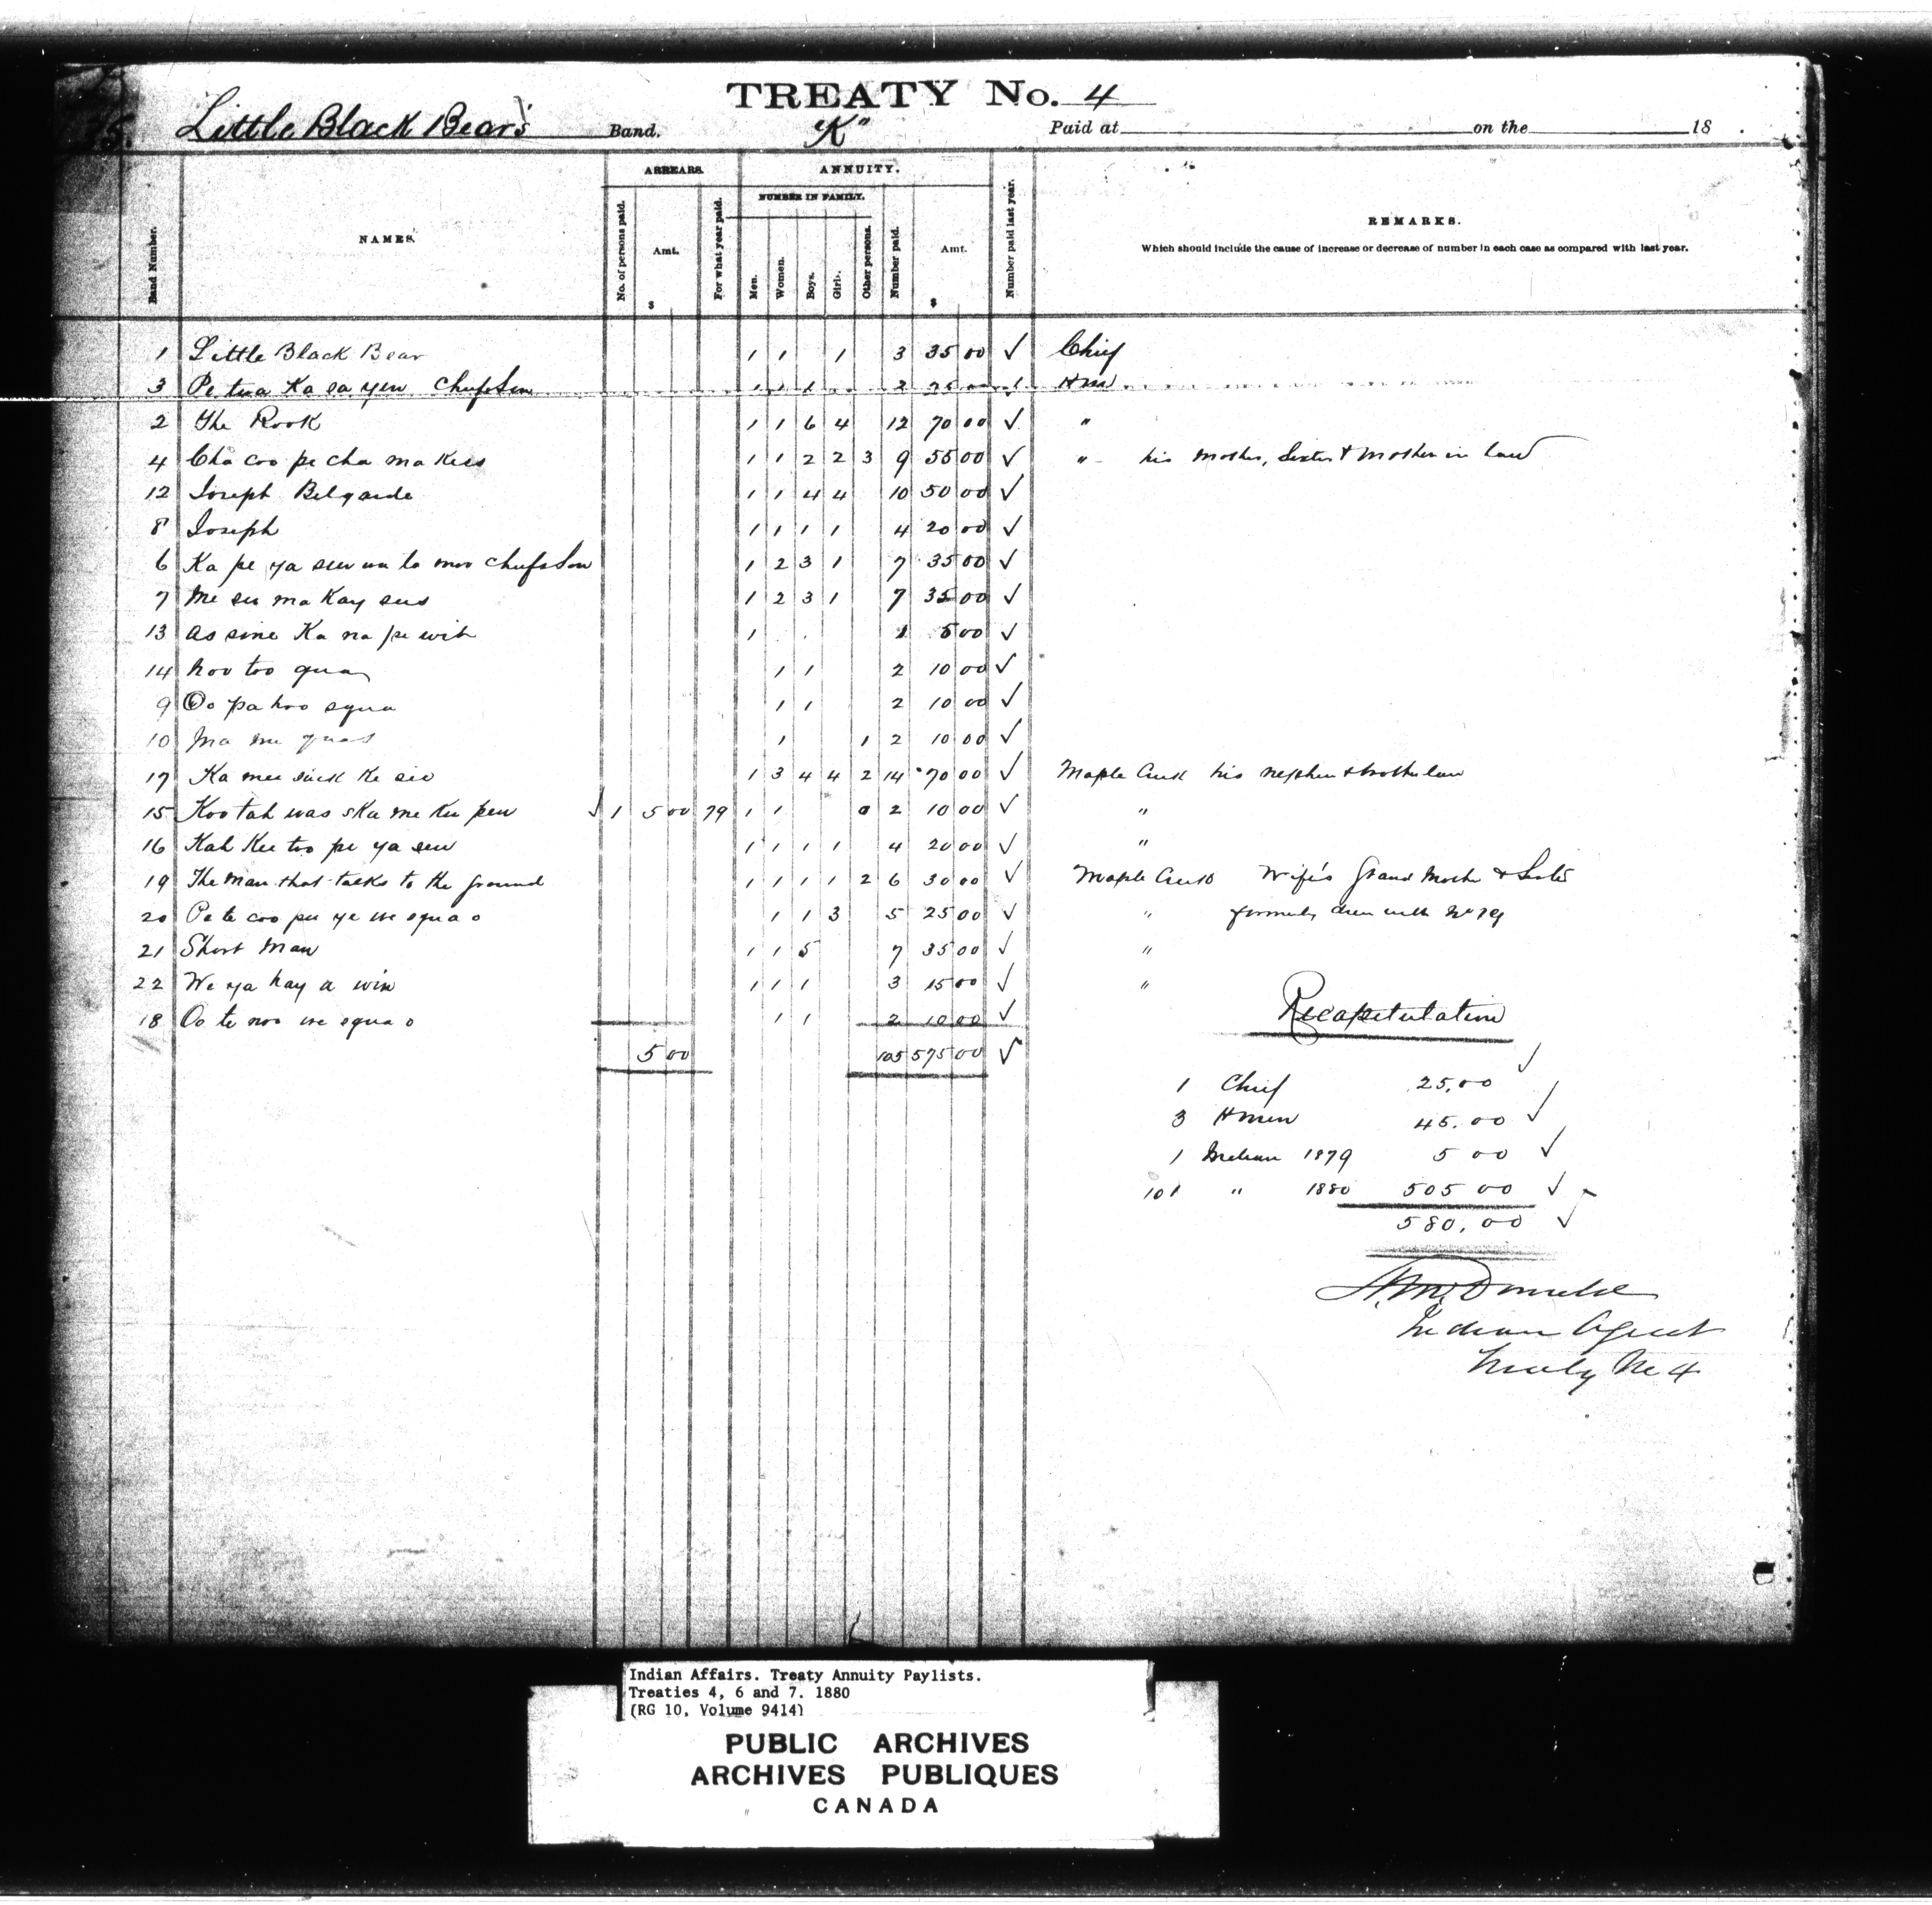 TREATY No. 4
75. Little Black Bear's Band. "K" Paid at on the 18 .
Band Number. NAMES. ARREARS. No. of persons paid. Amt. $ For what year paid. ANNUITY. NUMBER IN FAMILY. Men. Women. Boys. Girls. Other persons. Number paid. Amt. $ Number paid last year. REMARKS.
Which should include the cause of increase or decrease of number in each case as compared with last year.
1 Little Black Bear 1 1 1 3 35 00 ✓ Chief
3 Pe twa Ka sa yin Chiefs Son 1 1 2 25 00 ✓ H m
2 The Rook 1 1 6 4 12 70 00 ✓ "
4 Cha coo pe cha ma Kees 1 1 2 2 3 9 55 00 ✓ " his Mother, Sister & Mother in law
12 Joseph Belgarde 1 1 4 4 10 50 00 ✓
8 Joseph 1 1 1 1 4 20 00 ✓
6 Ka pe ya sew un to moo Chiefs Son 1 2 3 1 7 35 00 ✓
7 Me su ma Kay sees 1 2 3 1 7 35 00 ✓
13 as sine Ka na pe wit 1 1 5 00 ✓
14 hoo too qua 1 1 2 10 00 ✓
9 Oo pa hoo squa 1 1 2 10 00 ✓
10 Ma me quas 1 1 2 10 00 ✓
17 Ka mee suck Ke sio 1 3 4 4 2 14 70 00 ✓ Maple Creek his nephew & brother law
15 Koo tah was sKa me Kee pew ✓ 1 5 00 79 1 1 0 2 10 00 ✓ "
16 Kah Kee too pe ya sew 1 1 1 1 4 20 00 ✓ "
19 The Man that talks to the ground 1 1 1 1 2 6 30 00 ✓ Maple Creek Wife's Grand Mother & Sister
20 Pe te coo pee ye we squa o 1 1 3 5 25 00 ✓ " formerly drew with No 19
21 Short Man 1 1 5 7 35 00 ✓ "
22 We ya hay a win 1 1 1 3 15 00 ✓ "
18 Oo te noo we squa o 1 1 2 10 00 ✓
Recapitulation
5 00 105 575 00 ✓
1 Chief 25.00 ✓
3 H men 45.00 ✓
1 Indian 1879 5 00 ✓
101 " 1880 505 00 ✓
580.00 ✓
A. McDonald
Indian Agent
Treaty No 4
Indian Affairs. Treaty Annuity Paylists.
Treaties 4, 6 and 7. 1880
(RG 10, Volume 9414)
PUBLIC ARCHIVES
ARCHIVES PUBLIQUES
CANADA